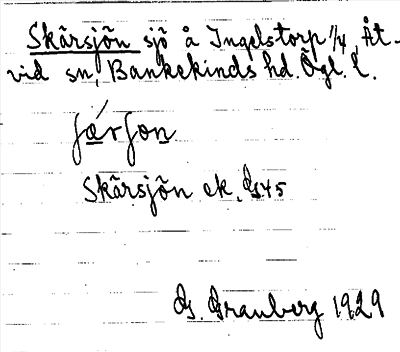 Skärsjön sjö å Ingelstorp 1/4, Åt-
vid sn, Bankekinds hd. Ögl. l.
Skärsjön ek. G45
G. Granberg 1929